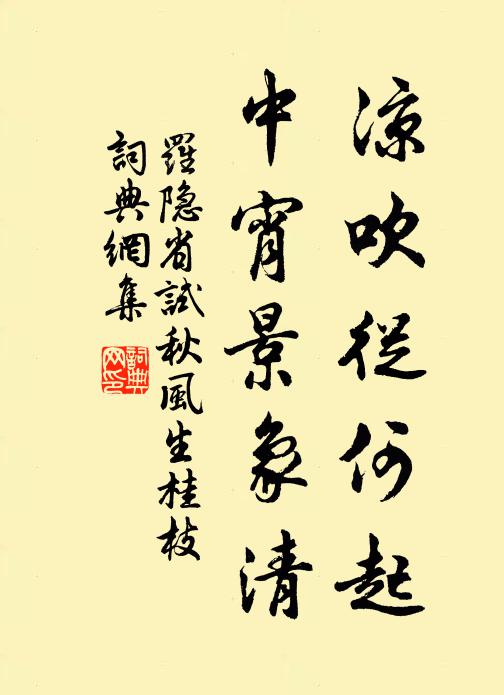 涼吹從何起
中宵景象清
羅隐省試秋風生桂枝
詞典網集
詞典
网印